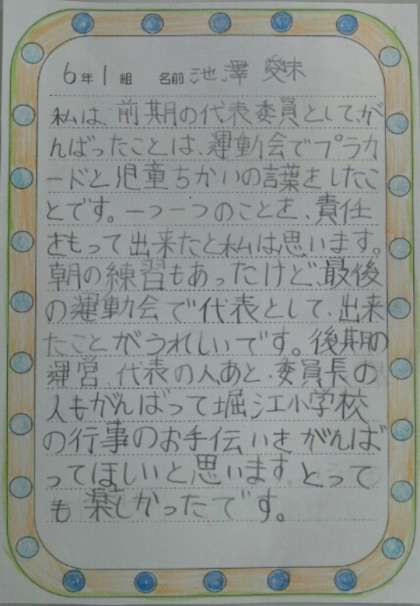 6年1組 名前 池澤 愛未
私は、前期の代表委員として、が
んばったことは、運動会でプラカ
ードと児童ちかいの言葉をしたこ
とです。一つ一つのことを、責任
をもって出来たと私は思います。
朝の練習もあったけど、最後
の運動会で代表として、出来
たことがうれしいです。後期の
運営、代表の人あと、委員長の
人もがんばって堀江小学校
の行事のお手伝いをがんば
ってほしいと思います。とって
も楽しかったです。